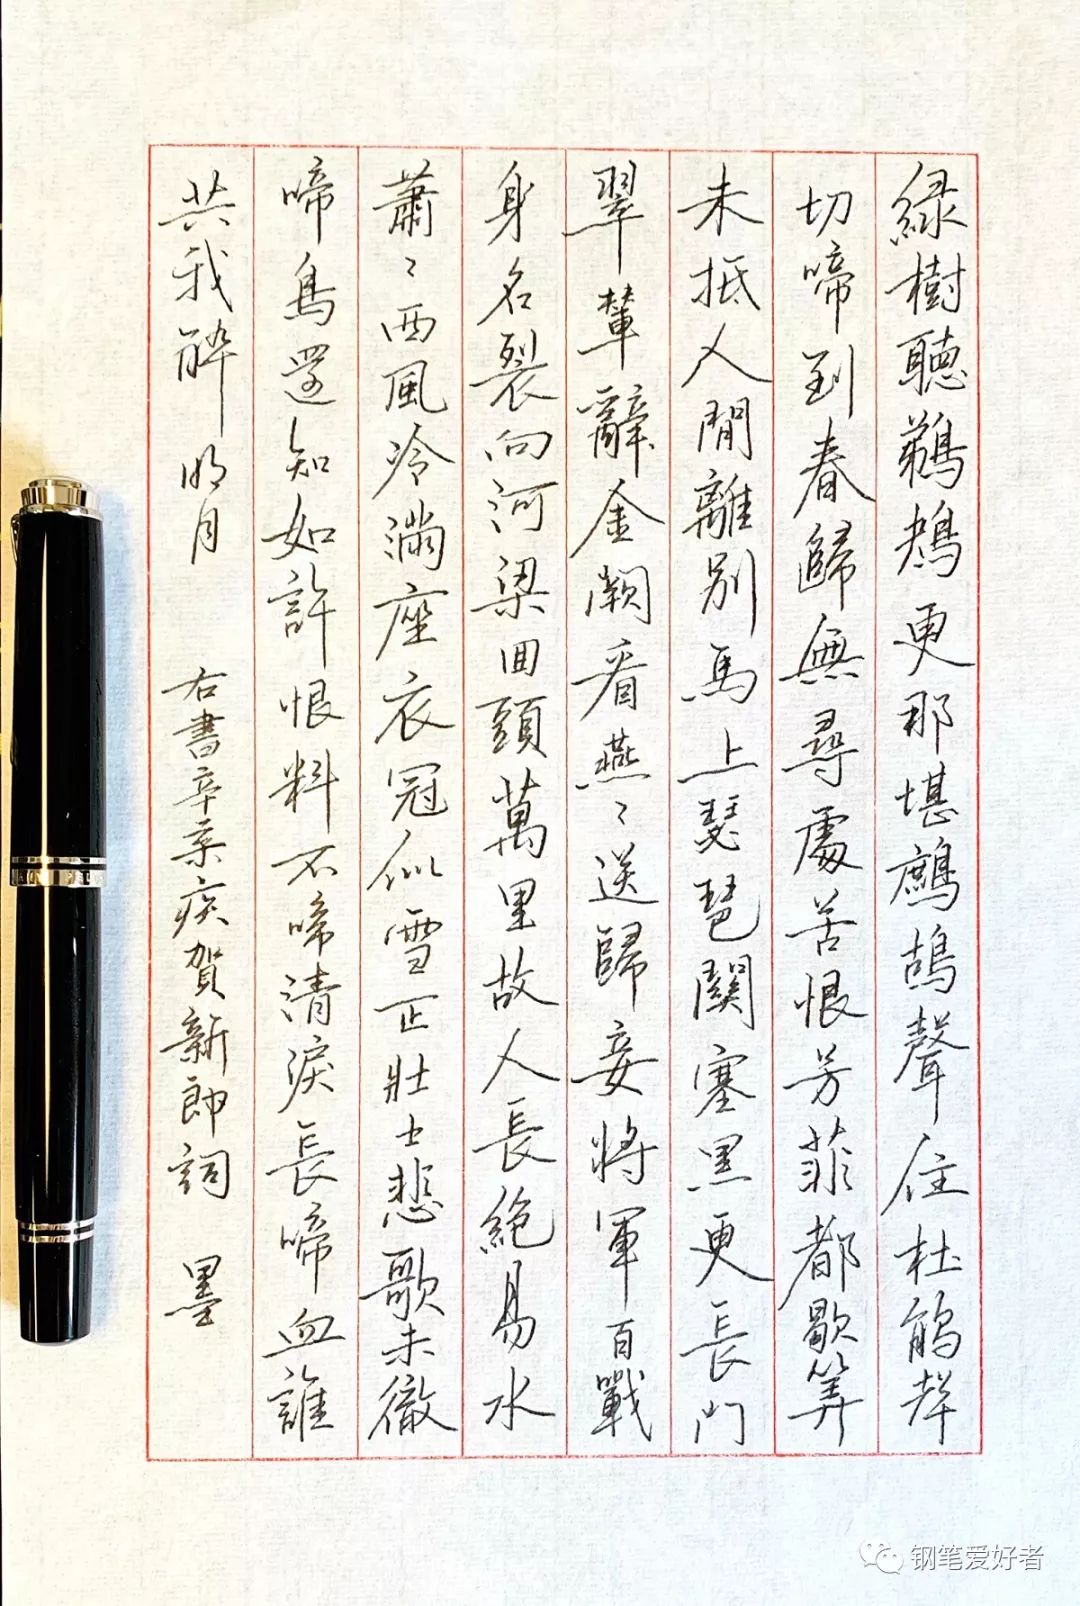 綠樹聽鵜鴂更那堪鷓鴣聲住杜鵑聲
切啼到春歸無尋處苦恨芳菲都歇算
未抵人間離別馬上琵琶關塞黑更長門
翠輦辭金闕看燕〻送歸妾將軍百戰
身名裂向河梁回頭萬里故人長絕易水
蕭〻西風冷滿座衣冠似雪正壯士悲歌未徹
啼鳥還知如許恨料不啼清淚長啼血誰
共我醉明月
右書辛棄疾賀新郎詞 墨
钢笔爱好者